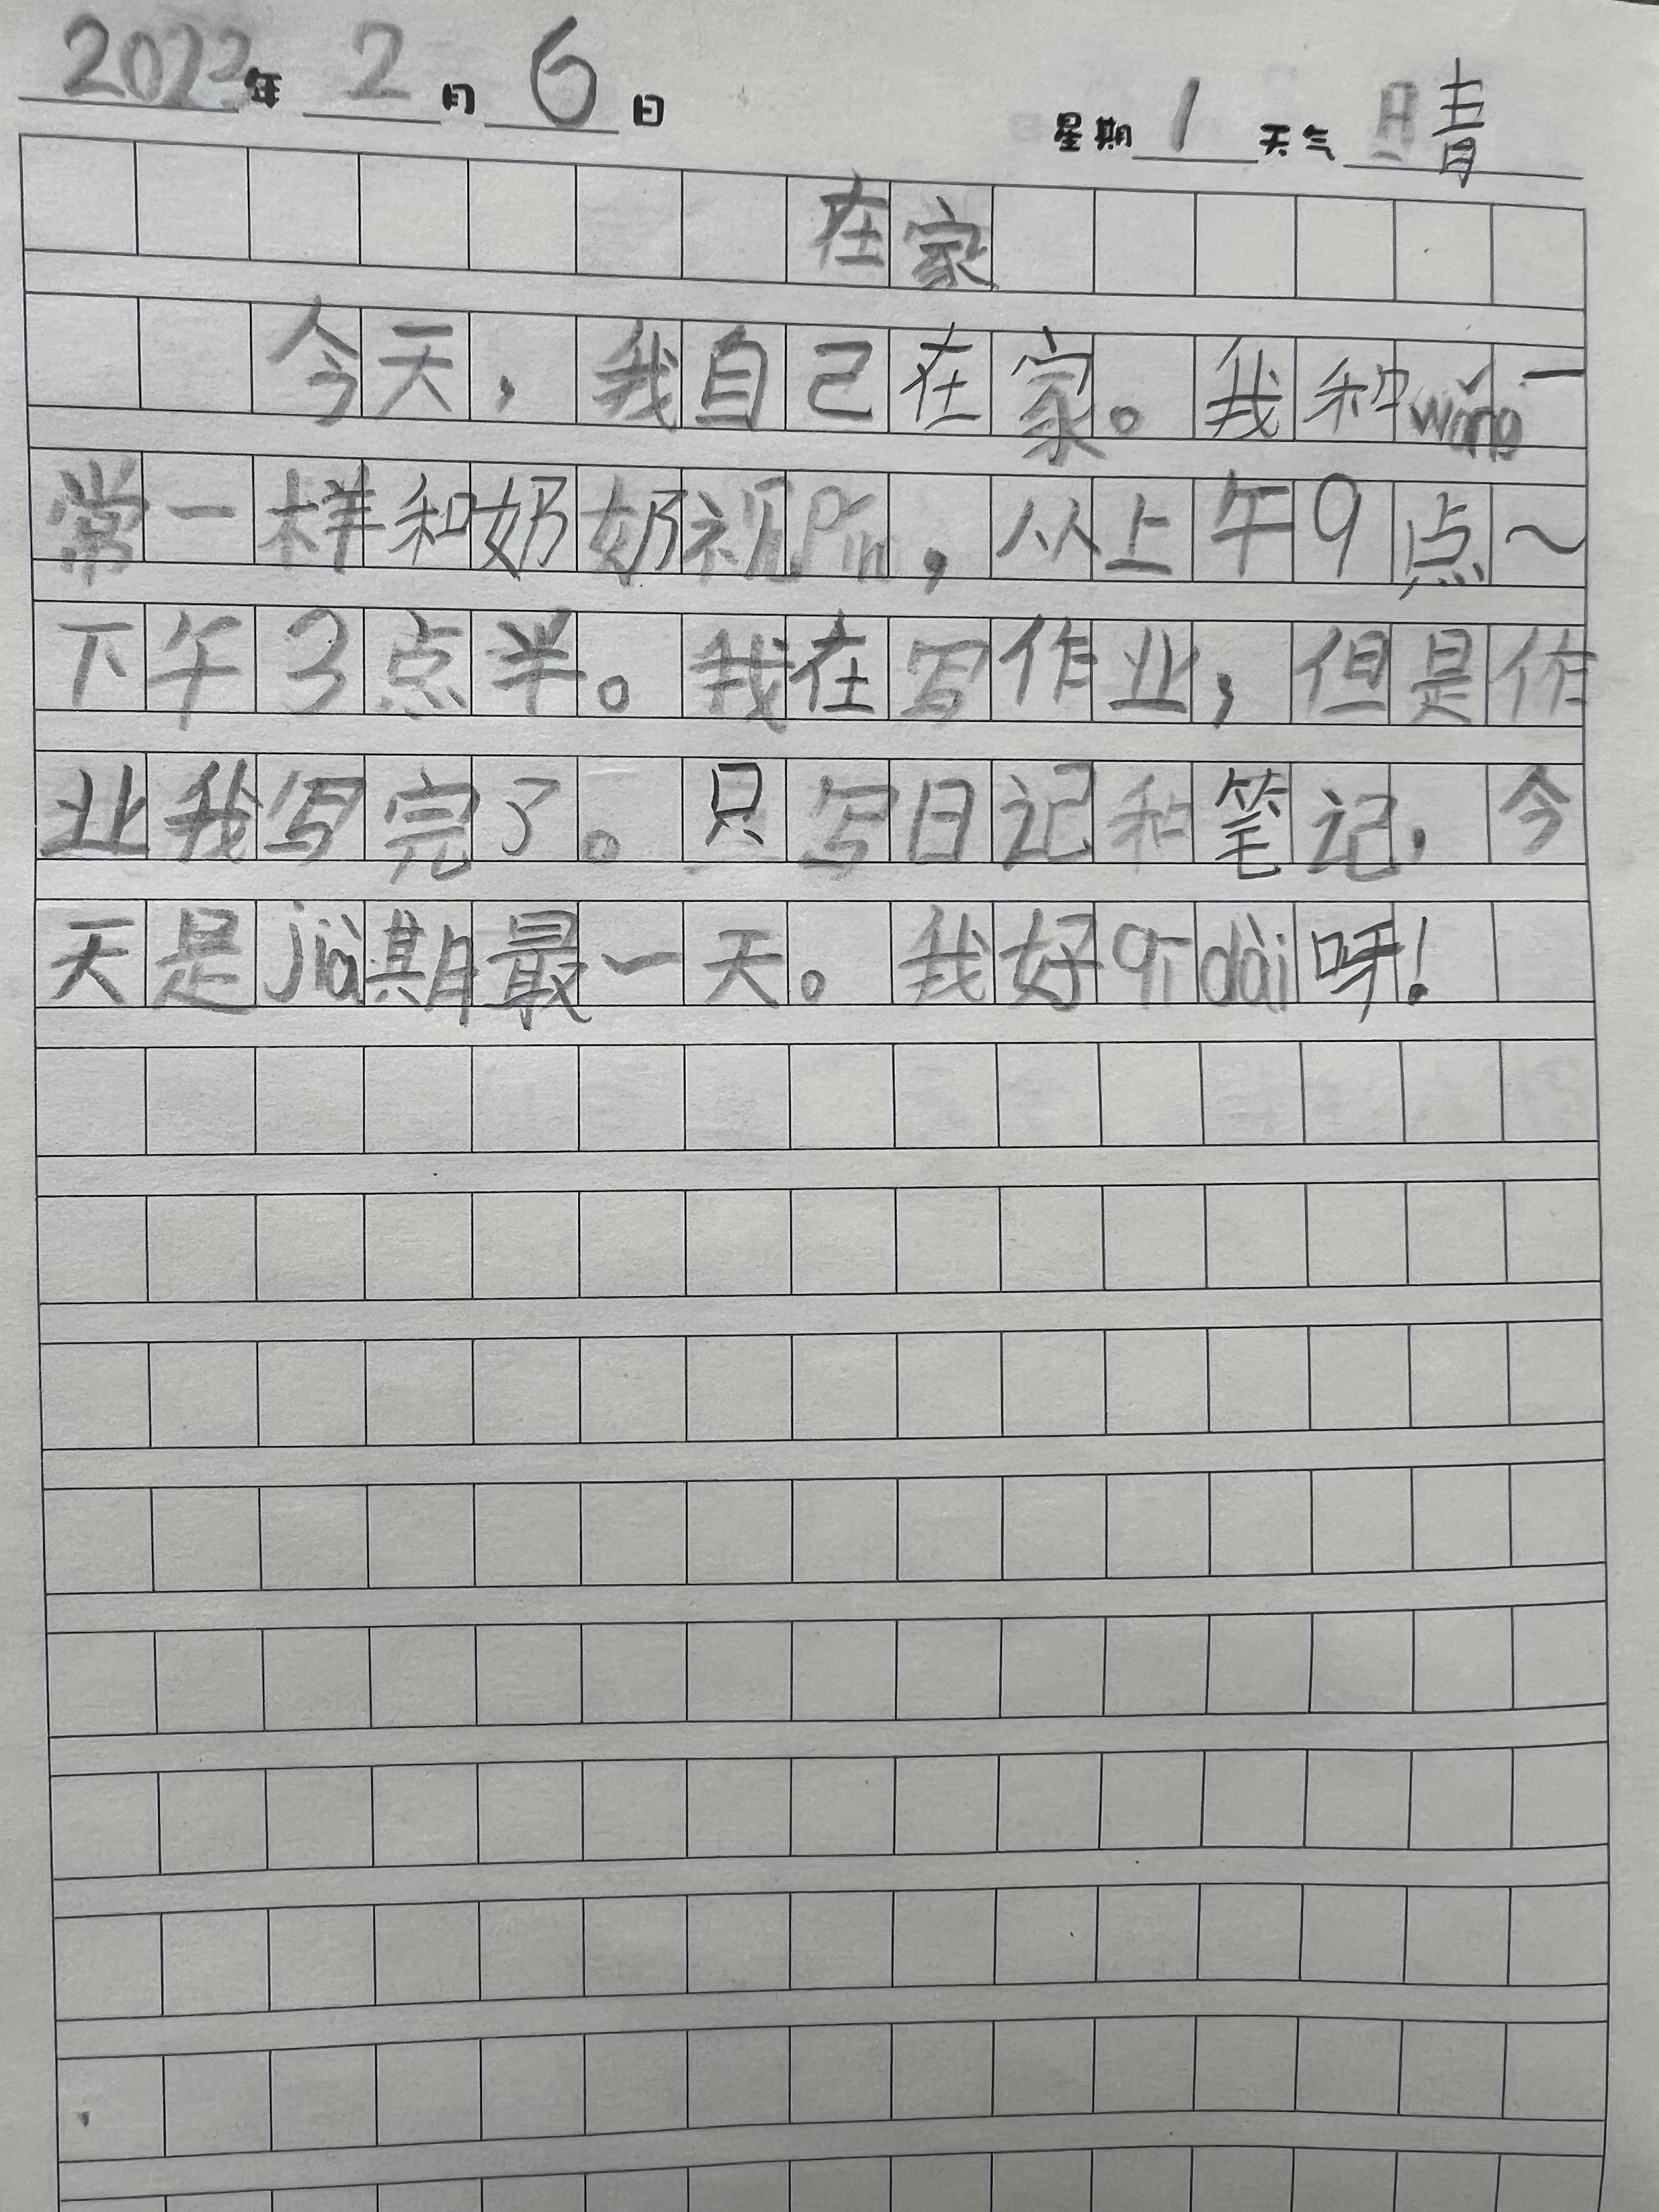 2023年 2月 6日 星期 1 天气 晴
在家
今天，我自己在家。我和wǎng一
常一样和奶奶视Pín，从上午9点～
下午3点半。我在写作业，但是作
业我写完了。只写日记和笔记，今
天是jià期最一天。我好qī dài呀！